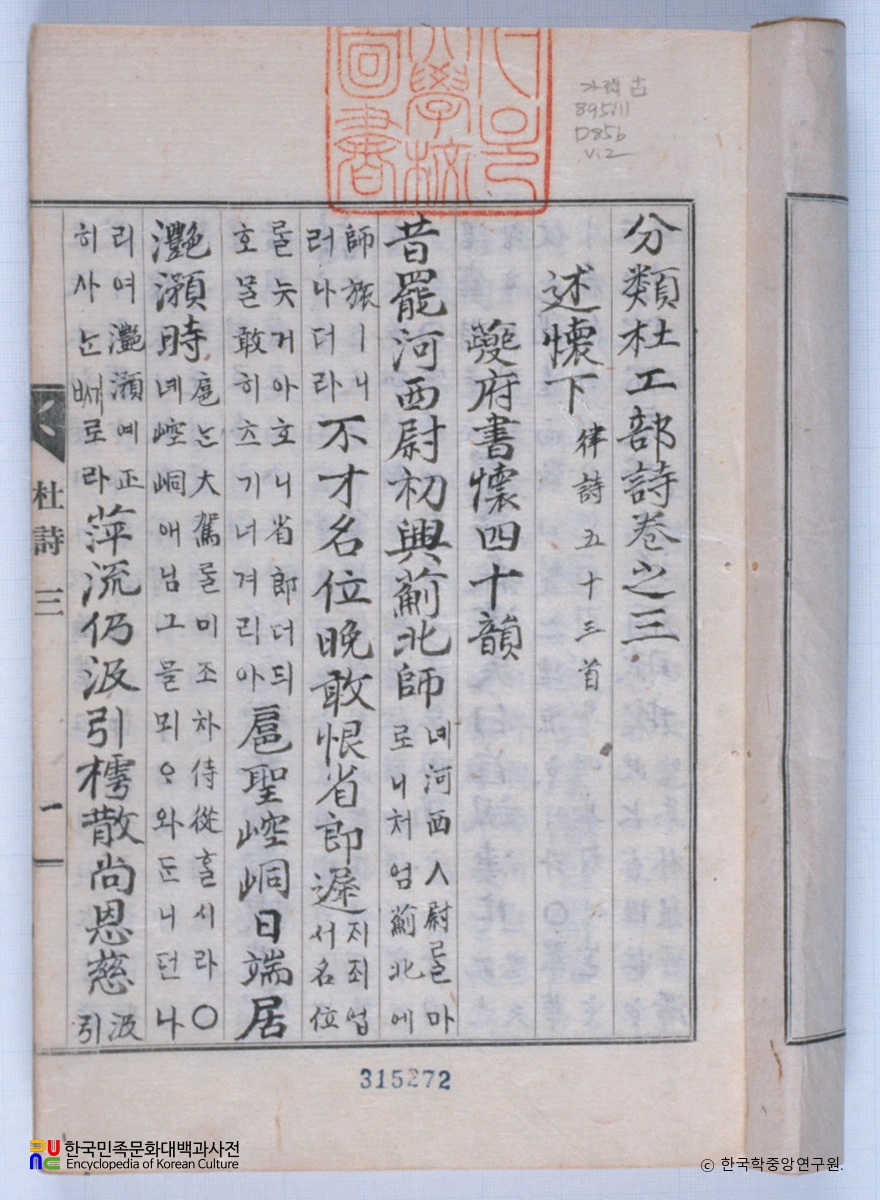 가람 古
895.11
D85b
v.2
大學校
圖書
分類杜工部詩卷之三
述懷下 律詩五十三首
夔府書懷四十韻
昔罷河西尉初興薊北師 녜河西ㅅ尉ᄅᆞᆯ마로니처엄薊北에
師旅ㅣ니러나더라 不才名位晚敢恨省郎遲 ᄌᆡ죄업서名位
ᄅᆞᆯ늣거아호니省郎더듸호ᄆᆞᆯ敢히츠기너겨리아 扈聖崆峒日端居
灩澦時 扈ᄂᆞᆫ大駕ᄅᆞᆯ미조차侍從ᄒᆞᆯ시라○녜崆峒애님그ᄆᆞᆯ뫼ᄋᆞ와ᄃᆞᆫ니던나
리여灩澦예正히사ᄂᆞᆫᄢᅴ로라 萍流仍汲引樗散尙恩慈 汲引
杜詩 三
一
315272
한국민족문화대백과사전
Encyclopedia of Korean Culture
ⓒ 한국학중앙연구원.